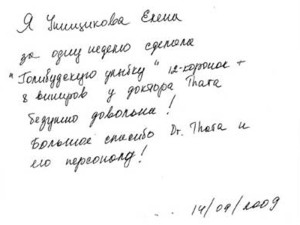 Я Уншцикова Елена
за одну неделю сделала
"Голивудскую улыбку" 12-коронок +
8 виниров у доктора Thara
безумно довольна!
Большое спасибо Dr. Thara и
его персоналу!
14/09/2009